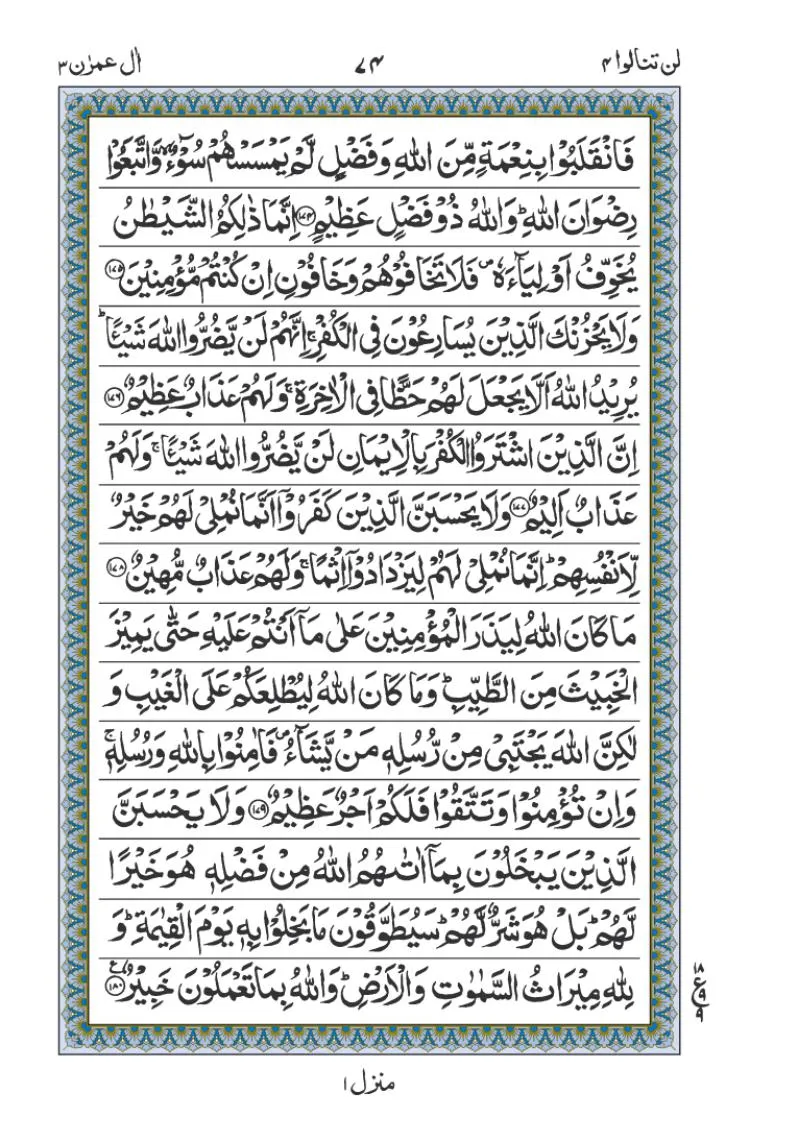 لن تنالوا ۴ ۷۴ اٰل عمرٰن ۳
فَانْقَلَبُوْا بِنِعْمَةٍ مِّنَ اللّٰهِ وَفَضْلٍ لَّمْ يَمْسَسْهُمْ سُوْٓءٌ ۙ وَّاتَّبَعُوْا
رِضْوَانَ اللّٰهِ ؕ وَاللّٰهُ ذُوْ فَضْلٍ عَظِيْمٍ ﴿۱۷۴﴾ اِنَّمَا ذٰلِكُمُ الشَّيْطٰنُ
يُخَوِّفُ اَوْلِيَآءَهٗ ۪ فَلَا تَخَافُوْهُمْ وَخَافُوْنِ اِنْ كُنْتُمْ مُّؤْمِنِيْنَ ﴿۱۷۵﴾
وَلَا يَحْزُنْكَ الَّذِيْنَ يُسَارِعُوْنَ فِي الْكُفْرِ ۚ اِنَّهُمْ لَنْ يَّضُرُّوا اللّٰهَ شَيْـًٔا ؕ
يُرِيْدُ اللّٰهُ اَلَّا يَجْعَلَ لَهُمْ حَظًّا فِي الْاٰخِرَةِ ۚ وَلَهُمْ عَذَابٌ عَظِيْمٌ ﴿۱۷۶﴾
اِنَّ الَّذِيْنَ اشْتَرَوُا الْكُفْرَ بِالْاِيْمَانِ لَنْ يَّضُرُّوا اللّٰهَ شَيْـًٔا ۚ وَلَهُمْ
عَذَابٌ اَلِيْمٌ ﴿۱۷۷﴾ وَلَا يَحْسَبَنَّ الَّذِيْنَ كَفَرُوْٓا اَنَّمَا نُمْلِيْ لَهُمْ خَيْرٌ
لِّاَنْفُسِهِمْ ؕ اِنَّمَا نُمْلِيْ لَهُمْ لِيَزْدَادُوْٓا اِثْمًا ۚ وَلَهُمْ عَذَابٌ مُّهِيْنٌ ﴿۱۷۸﴾
مَا كَانَ اللّٰهُ لِيَذَرَ الْمُؤْمِنِيْنَ عَلٰى مَآ اَنْتُمْ عَلَيْهِ حَتّٰى يَمِيْزَ
الْخَبِيْثَ مِنَ الطَّيِّبِ ؕ وَمَا كَانَ اللّٰهُ لِيُطْلِعَكُمْ عَلَى الْغَيْبِ وَ
لٰكِنَّ اللّٰهَ يَجْتَبِيْ مِنْ رُّسُلِهٖ مَنْ يَّشَآءُ ۪ فَاٰمِنُوْا بِاللّٰهِ وَرُسُلِهٖ ۚ
وَاِنْ تُؤْمِنُوْا وَتَتَّقُوْا فَلَكُمْ اَجْرٌ عَظِيْمٌ ﴿۱۷۹﴾ وَلَا يَحْسَبَنَّ
الَّذِيْنَ يَبْخَلُوْنَ بِمَآ اٰتٰىهُمُ اللّٰهُ مِنْ فَضْلِهٖ هُوَ خَيْرًا
لَّهُمْ ؕ بَلْ هُوَ شَرٌّ لَّهُمْ ؕ سَيُطَوَّقُوْنَ مَا بَخِلُوْا بِهٖ يَوْمَ الْقِيٰمَةِ ؕ وَ
لِلّٰهِ مِيْرَاثُ السَّمٰوٰتِ وَالْاَرْضِ ؕ وَاللّٰهُ بِمَا تَعْمَلُوْنَ خَبِيْرٌ ﴿۱۸۰﴾ ع
۱۸
ع ۹
۹
منزل ۱